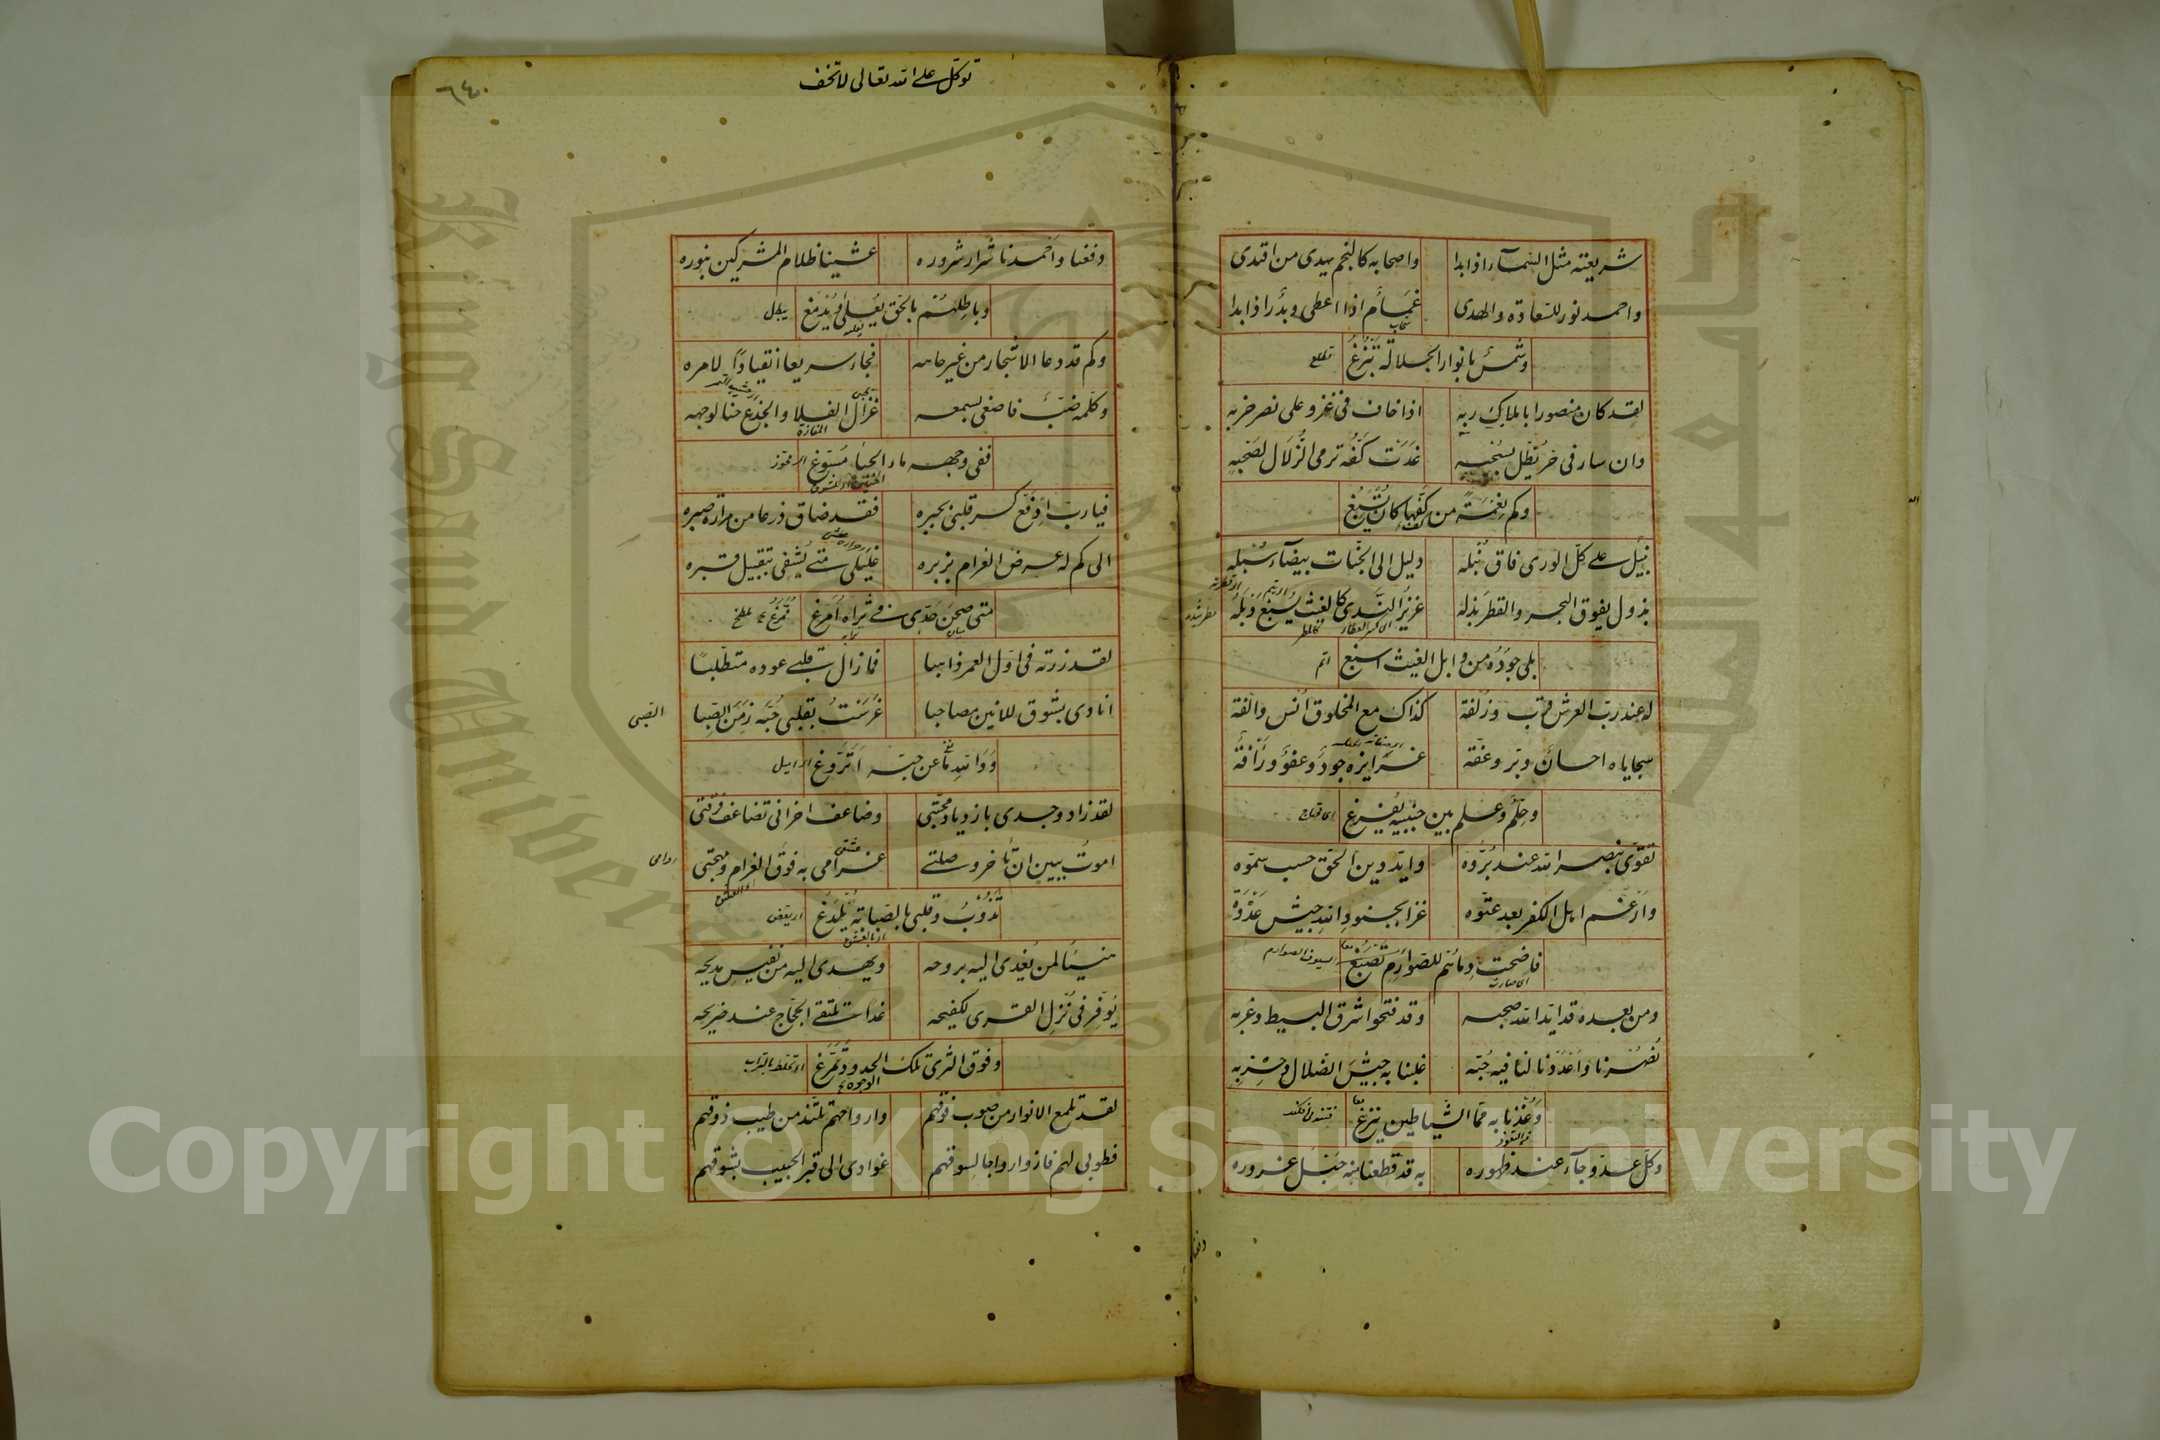 شريعته مثل السماء اذا بدا واصحابه كالنجم يهدى من اقتدى
واحمد نور للسعادة والهدى غمام اذا اعطى وبدر اذا بدا
سحاب
وشمس بانوار الجلالة تبزغ تطلع
لقد كان منصورا باملاك ربه اذا خاف فى غزو على نصر حزبه
وان سار فى حر تظل بسحبه غدت كفه ترمى الزلال لصحبه
وكم نعمة من كفها كان تسبغ
نبيل على كل الورى فاق نبله دليل الى الجنات بيضاء سبله
بذول يفوق البحر والقطر بذله غزير الندى كالغيث يسبغ وبله
بلى جوده من وابل الغيث اسبغ اتم
له عند رب العرش قرب وزلفة كذاك مع المخلوق انس والفة
سجاياه احسان وبر وعفة غرايزه جود وعفو ورأفة
وحلم وعلم بين جنبيه يفرغ
تقوى بنصر الله عند بروه وايد دين الحق حسب سموه
وارغم اهل الكفر بعد عتوه غزا بجنود الله جيش عدوه
فاضحت دمائهم للصوارم تصبغ
ومن بعده قد ايد الله صحبه وقد فتحوا شرق البسيط وغربه
نصرنا واعددنا لنا فيه حبه غلبنا به جيش الضلال وحزبه
وعذنا به مما الشياطين ينزغ
وكل عدو جاء عند ظهوره به قد قطعنا منه حبل غروره
توكل على الله تعالى لا تخف
٦٤٠
دفعنا واخمدنا شرار شروره عشينا ظلام المشركين بنوره
وباطلهم بالحق يعلى ويدمغ يبطل
وكم قد دعا الاشجار من غير حاسه فجاء سريعا انقيادا لامره
وكلمه ضب فاصغى لسمعه غزال الفلا والجذع حنا لوجهه
المفازة
ففى وجهه ماء الحيا مسوغ
فيا رب ادفع كسر قلبى بجبره فقد ضاق ذرعا من مرارة صبره
الى كم له عرض الغرام بزبره غليلى متى يشفى بتقبيل قبره
متى صحن خدى فى ثراه امرغ
لقد زرته فى اول العمر ذاهبا فما زال قلبى عوده متطلبا
انادى بشوق للانين مصاحبا غرست بقلبى حبه زمن الصبا
الصبى
ووالله ما عن حبه اتروغ
لقد زاد وجدى بازدياد محبتى وضاعف احزانى تضاعف فرقتى
اموت ببين ان تأخر وصلتى غرامى به فوق الغرام ومهجتى
تذوب وقلبى بالصبابة يلدغ
هنيئا لمن يغدى اليه بروحه ويهدى اليه من نفيس مديحه
يوفر فى نزل القرى لكفيحه غداة تلتقى الحجاج عند ضريحه
وفوق الثرى تلك الخدود تمرغ
لقد تلمع الانوار من صوب فوقهم وارواحهم تلتذ من طيب ذوقهم
فطوبى لهم فازوا رواجا لسوقهم غوادى الى قبر الحبيب بشوقهم
King Saud University
Copyright © King Saud University
1957